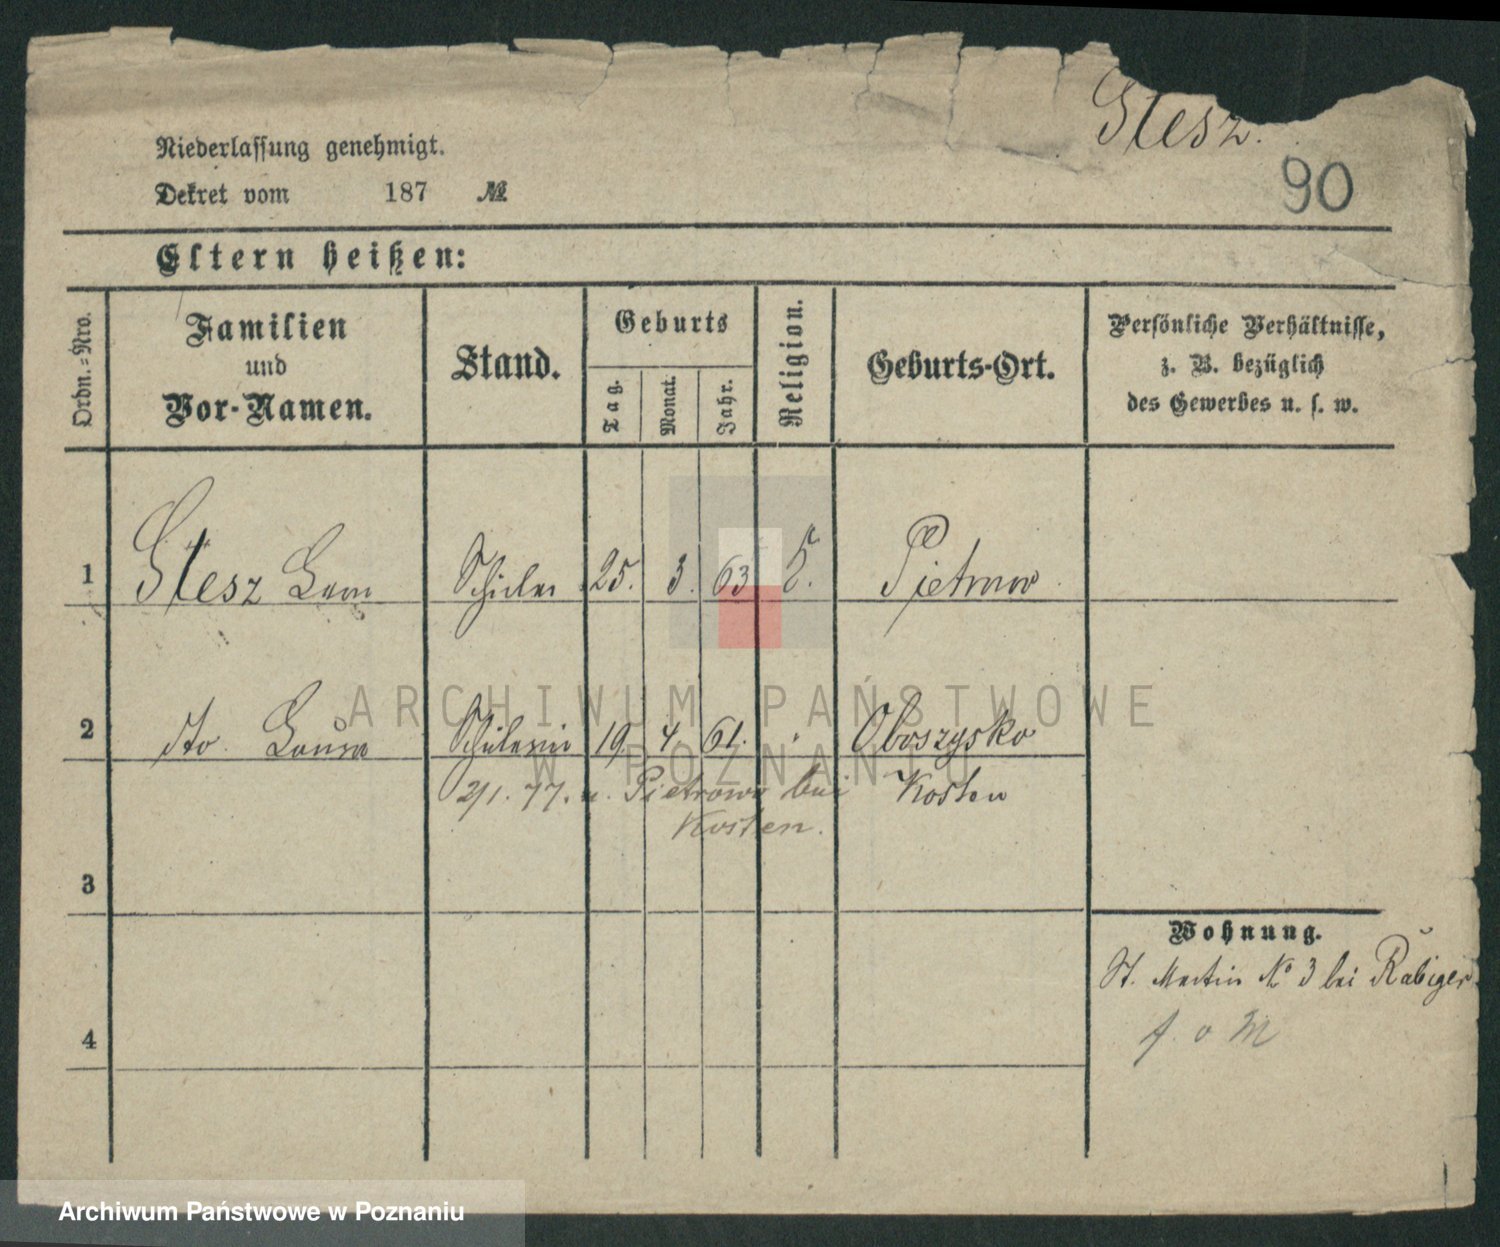 Stesz.
90
Niederlassung genehmigt.
Dekret vom 187 №
Eltern heißen:
Ordn.-Nro.
Familien
und
Vor-Namen.
Stand.
Geburts
Tag.
Monat.
Jahr.
Religion.
Geburts-Ort.
Persönliche Verhältnisse,
z. B. bezüglich
des Gewerbes u. s. w.
1 Stesz Leon Schüler 25. 3. 63
2 dto. Louisa Schülerin 19. 4. 61. Oboszysko
2/1. 77. n. Pietrowo bei Kosten
Kosten.
3
Wohnung.
St. Martin No 3 bei Rabiger
4
ARCHIWUM PAŃSTWOWE
W POZNANIU
Archiwum Państwowe w Poznaniu